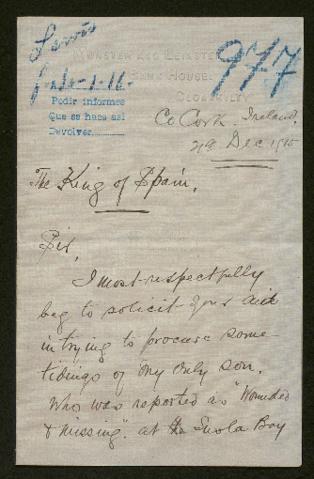 Munster and Leinster
Bank House.
Clonakilty
977
Pedir informes
Que se haga así
Devolver
Co Cork. Ireland.
Dec 1915
The King of Spain.
Sir,
I most respectfully
beg to solicit your aid
in trying to procure some-
tidings of my only son.
Who was reported as "Wounded
& missing". at the Suvla Bay